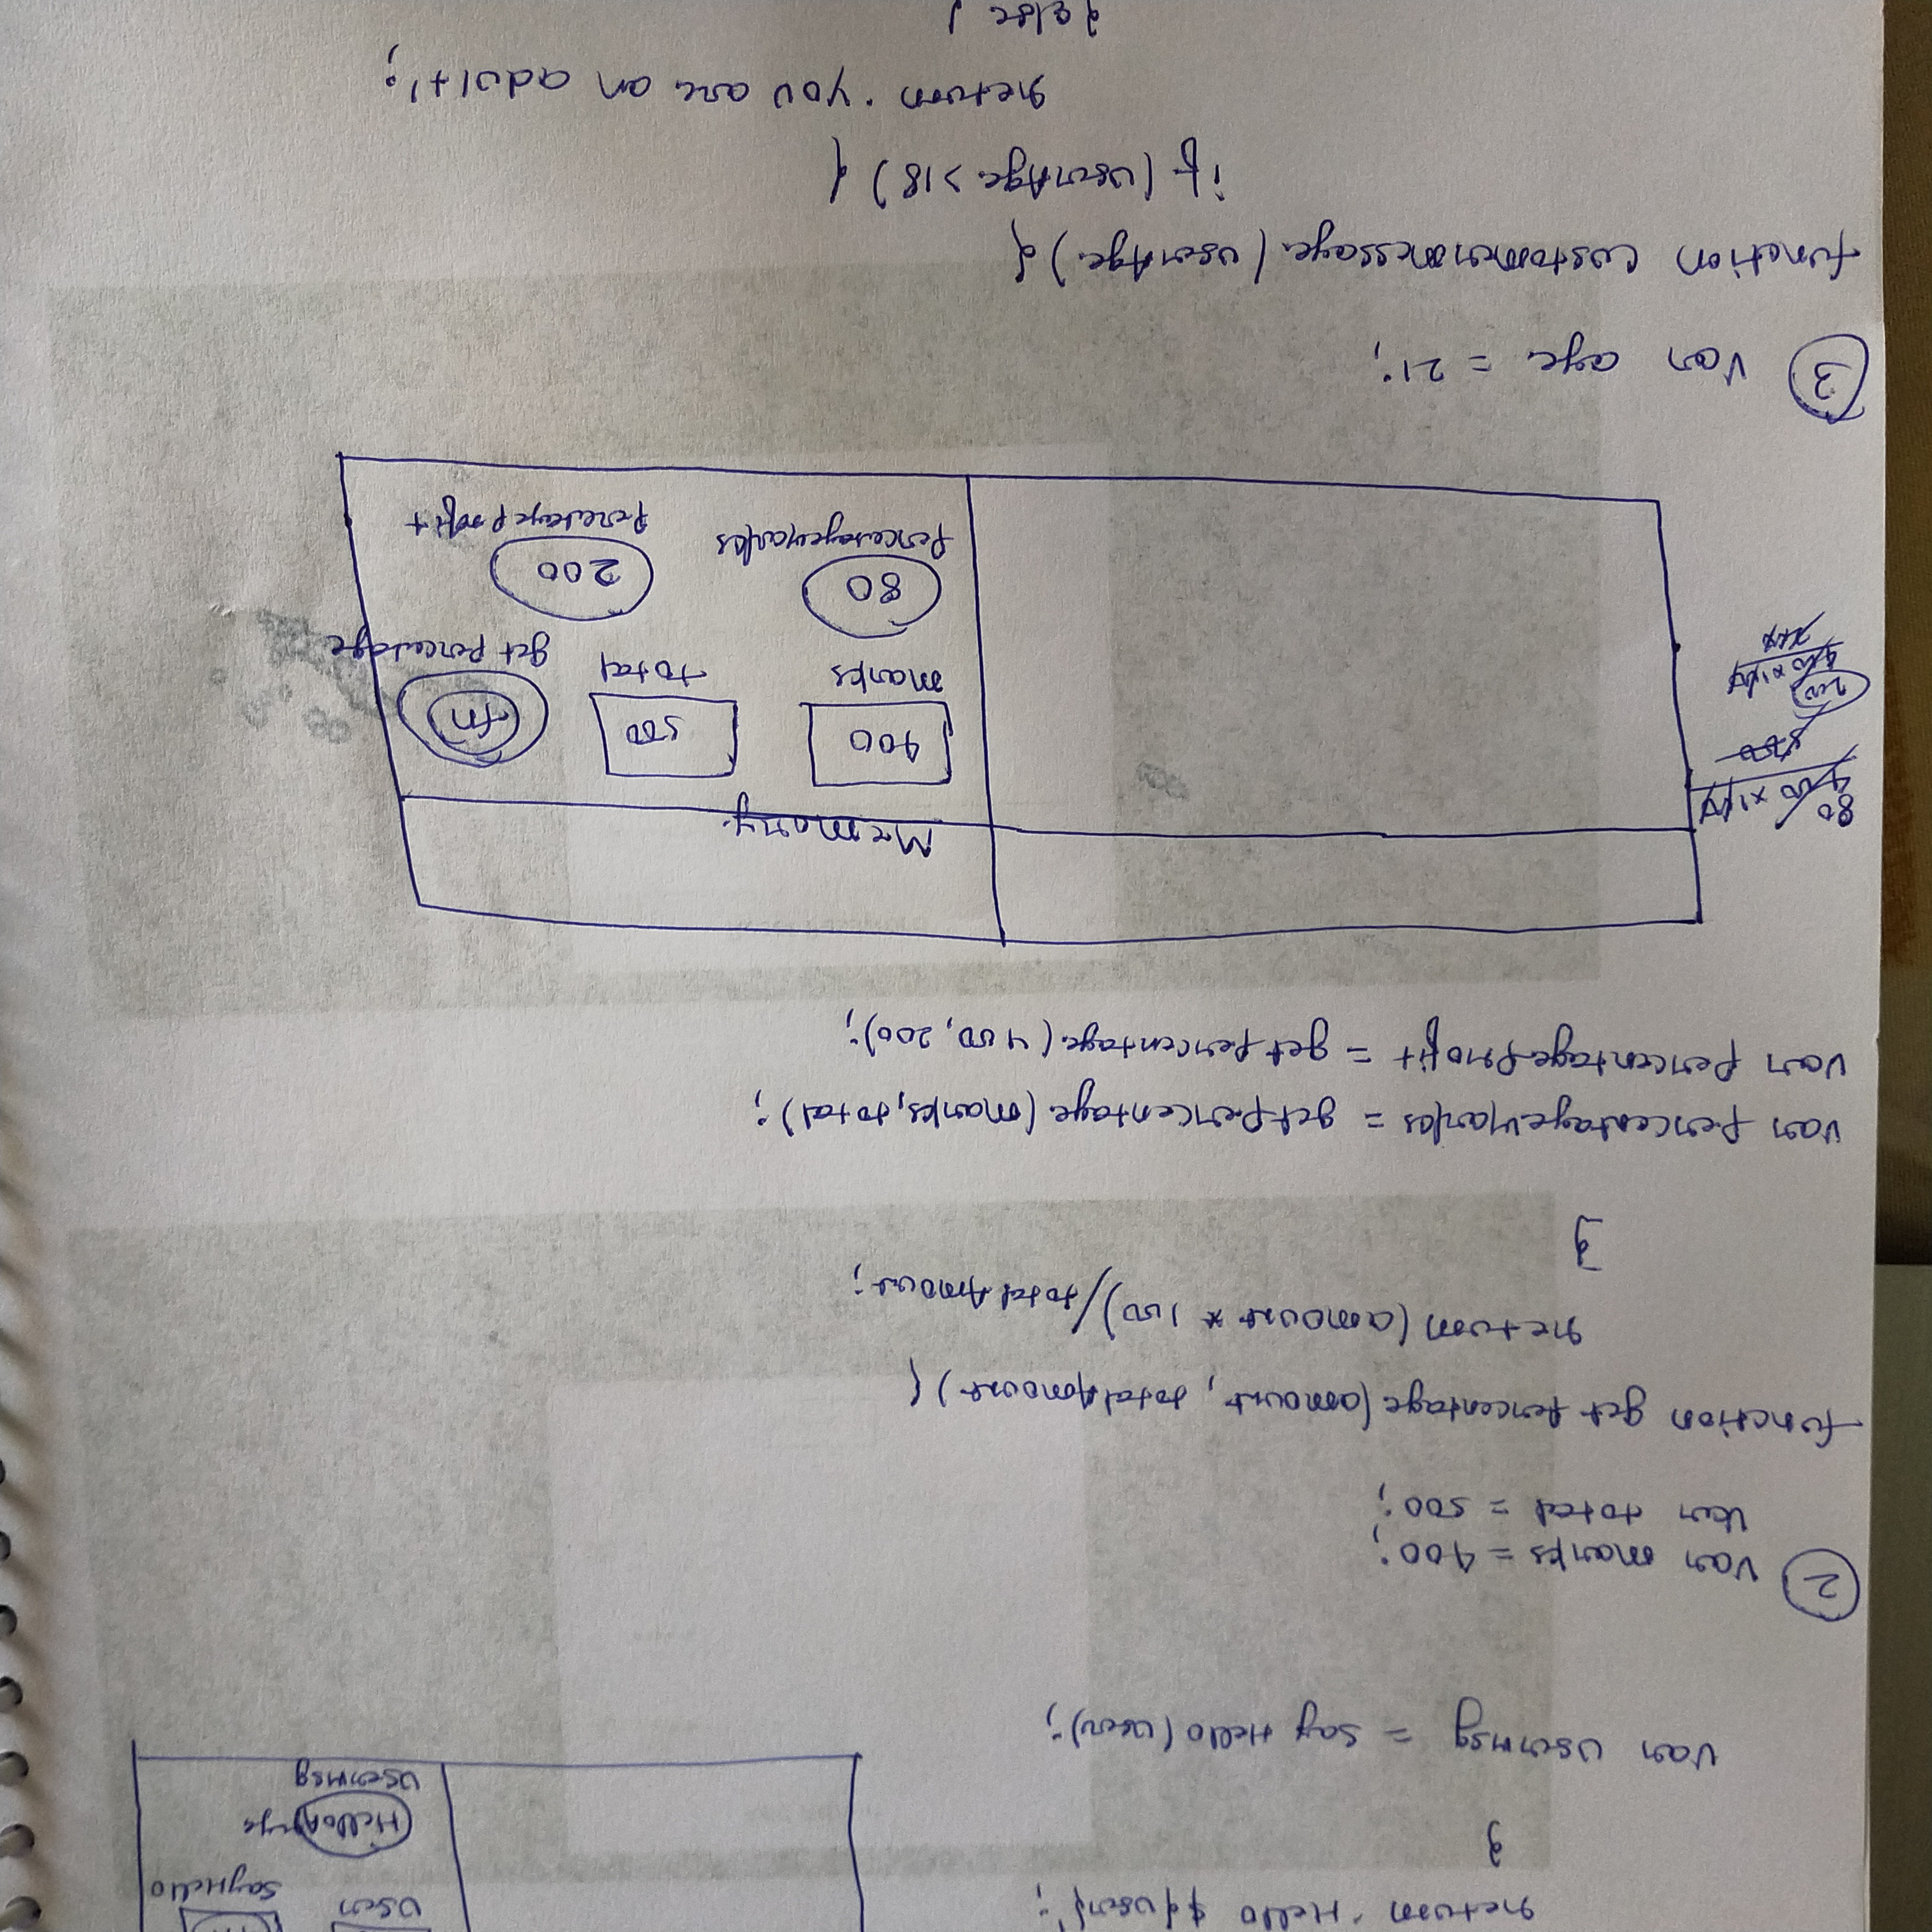 return 'Hello ${user}';
}
user
sayHello
Hello
usermsg
var usermsg = sayHello(user);
2
var marks = 400;
var total = 500;
function getPercentage(amount, totalAmount) {
return (amount * 100)/totalAmount;
}
var PercentageMarks = getPercentage(marks, total);
var PercentageProfit = getPercentage(400, 200);
Memory
400
marks
500
total
fn
get Percentage
80
PercentageMarks
200
PercentageProfit
80
400 x 100
500
200
400 x 100
200
3
var age = 21;
function customermessage(userAge) {
if (userAge > 18) {
return 'you are an adult';
} else {